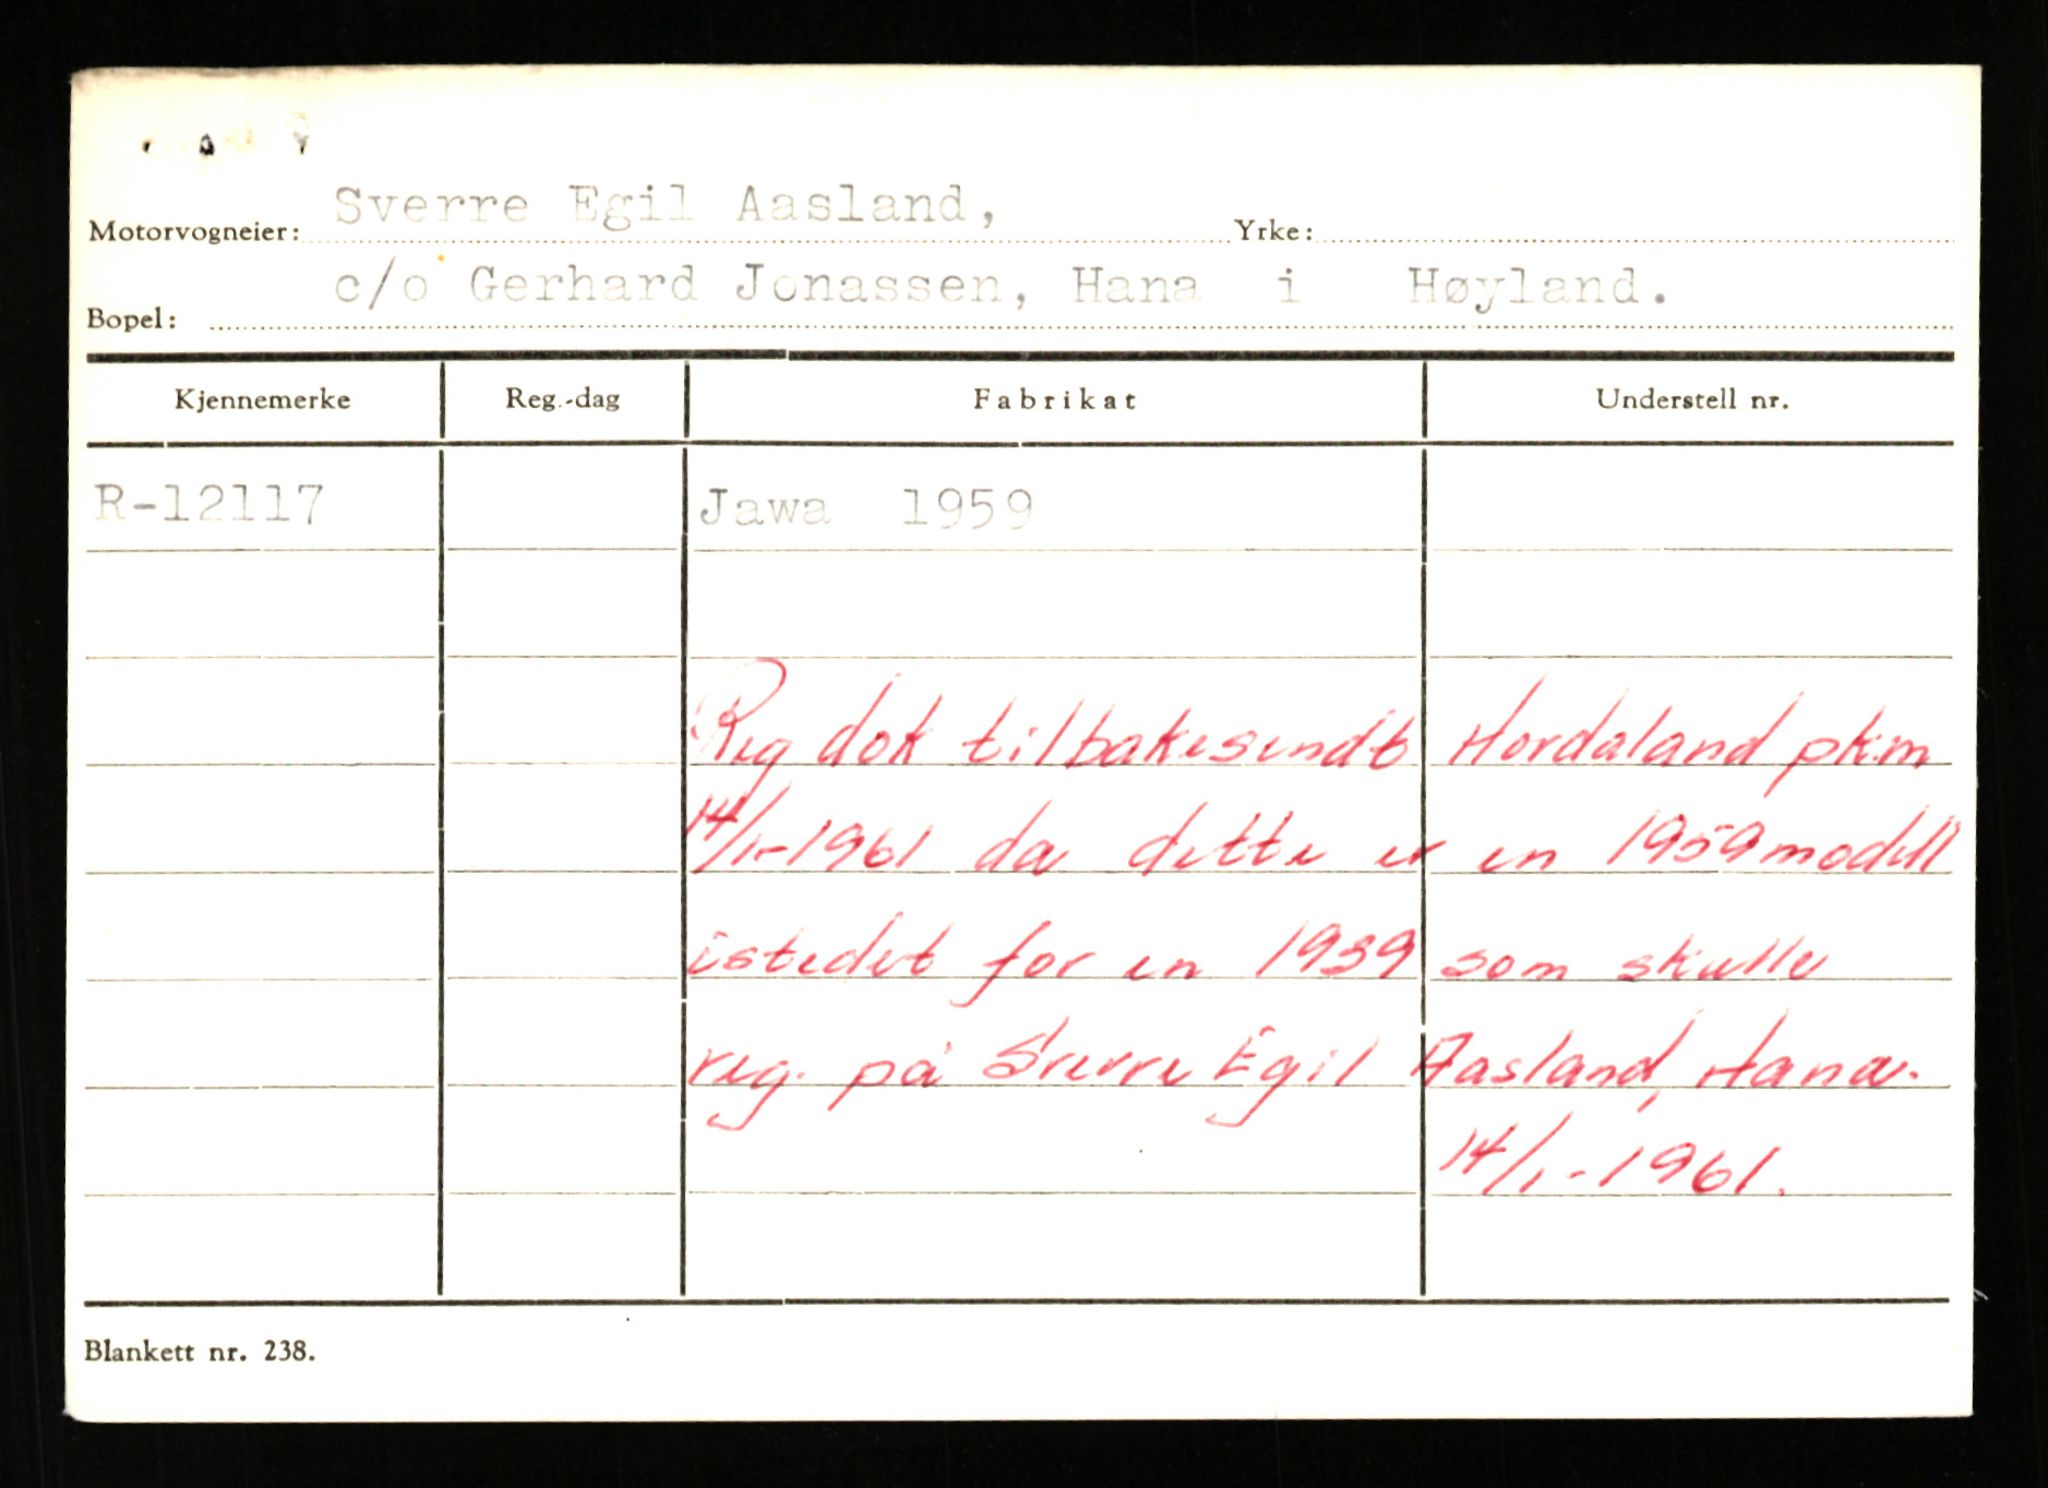 Motorvogneier: Sverre Egil Aasland, Yrke:
Bopel: c/o Gerhard Jonassen, Hana i Høyland.
Kjennemerke Reg.-dag Fabrikat Understell nr.
R-12117 Jawa 1959
Reg dok tilbakesendt Hordaland pkm
14/1-1961 da dette er en 1959 modell
istedet for en 1939 som skulle
reg. på Sverre Egil Aasland, Hana.
14/1-1961.
Blankett nr. 238.